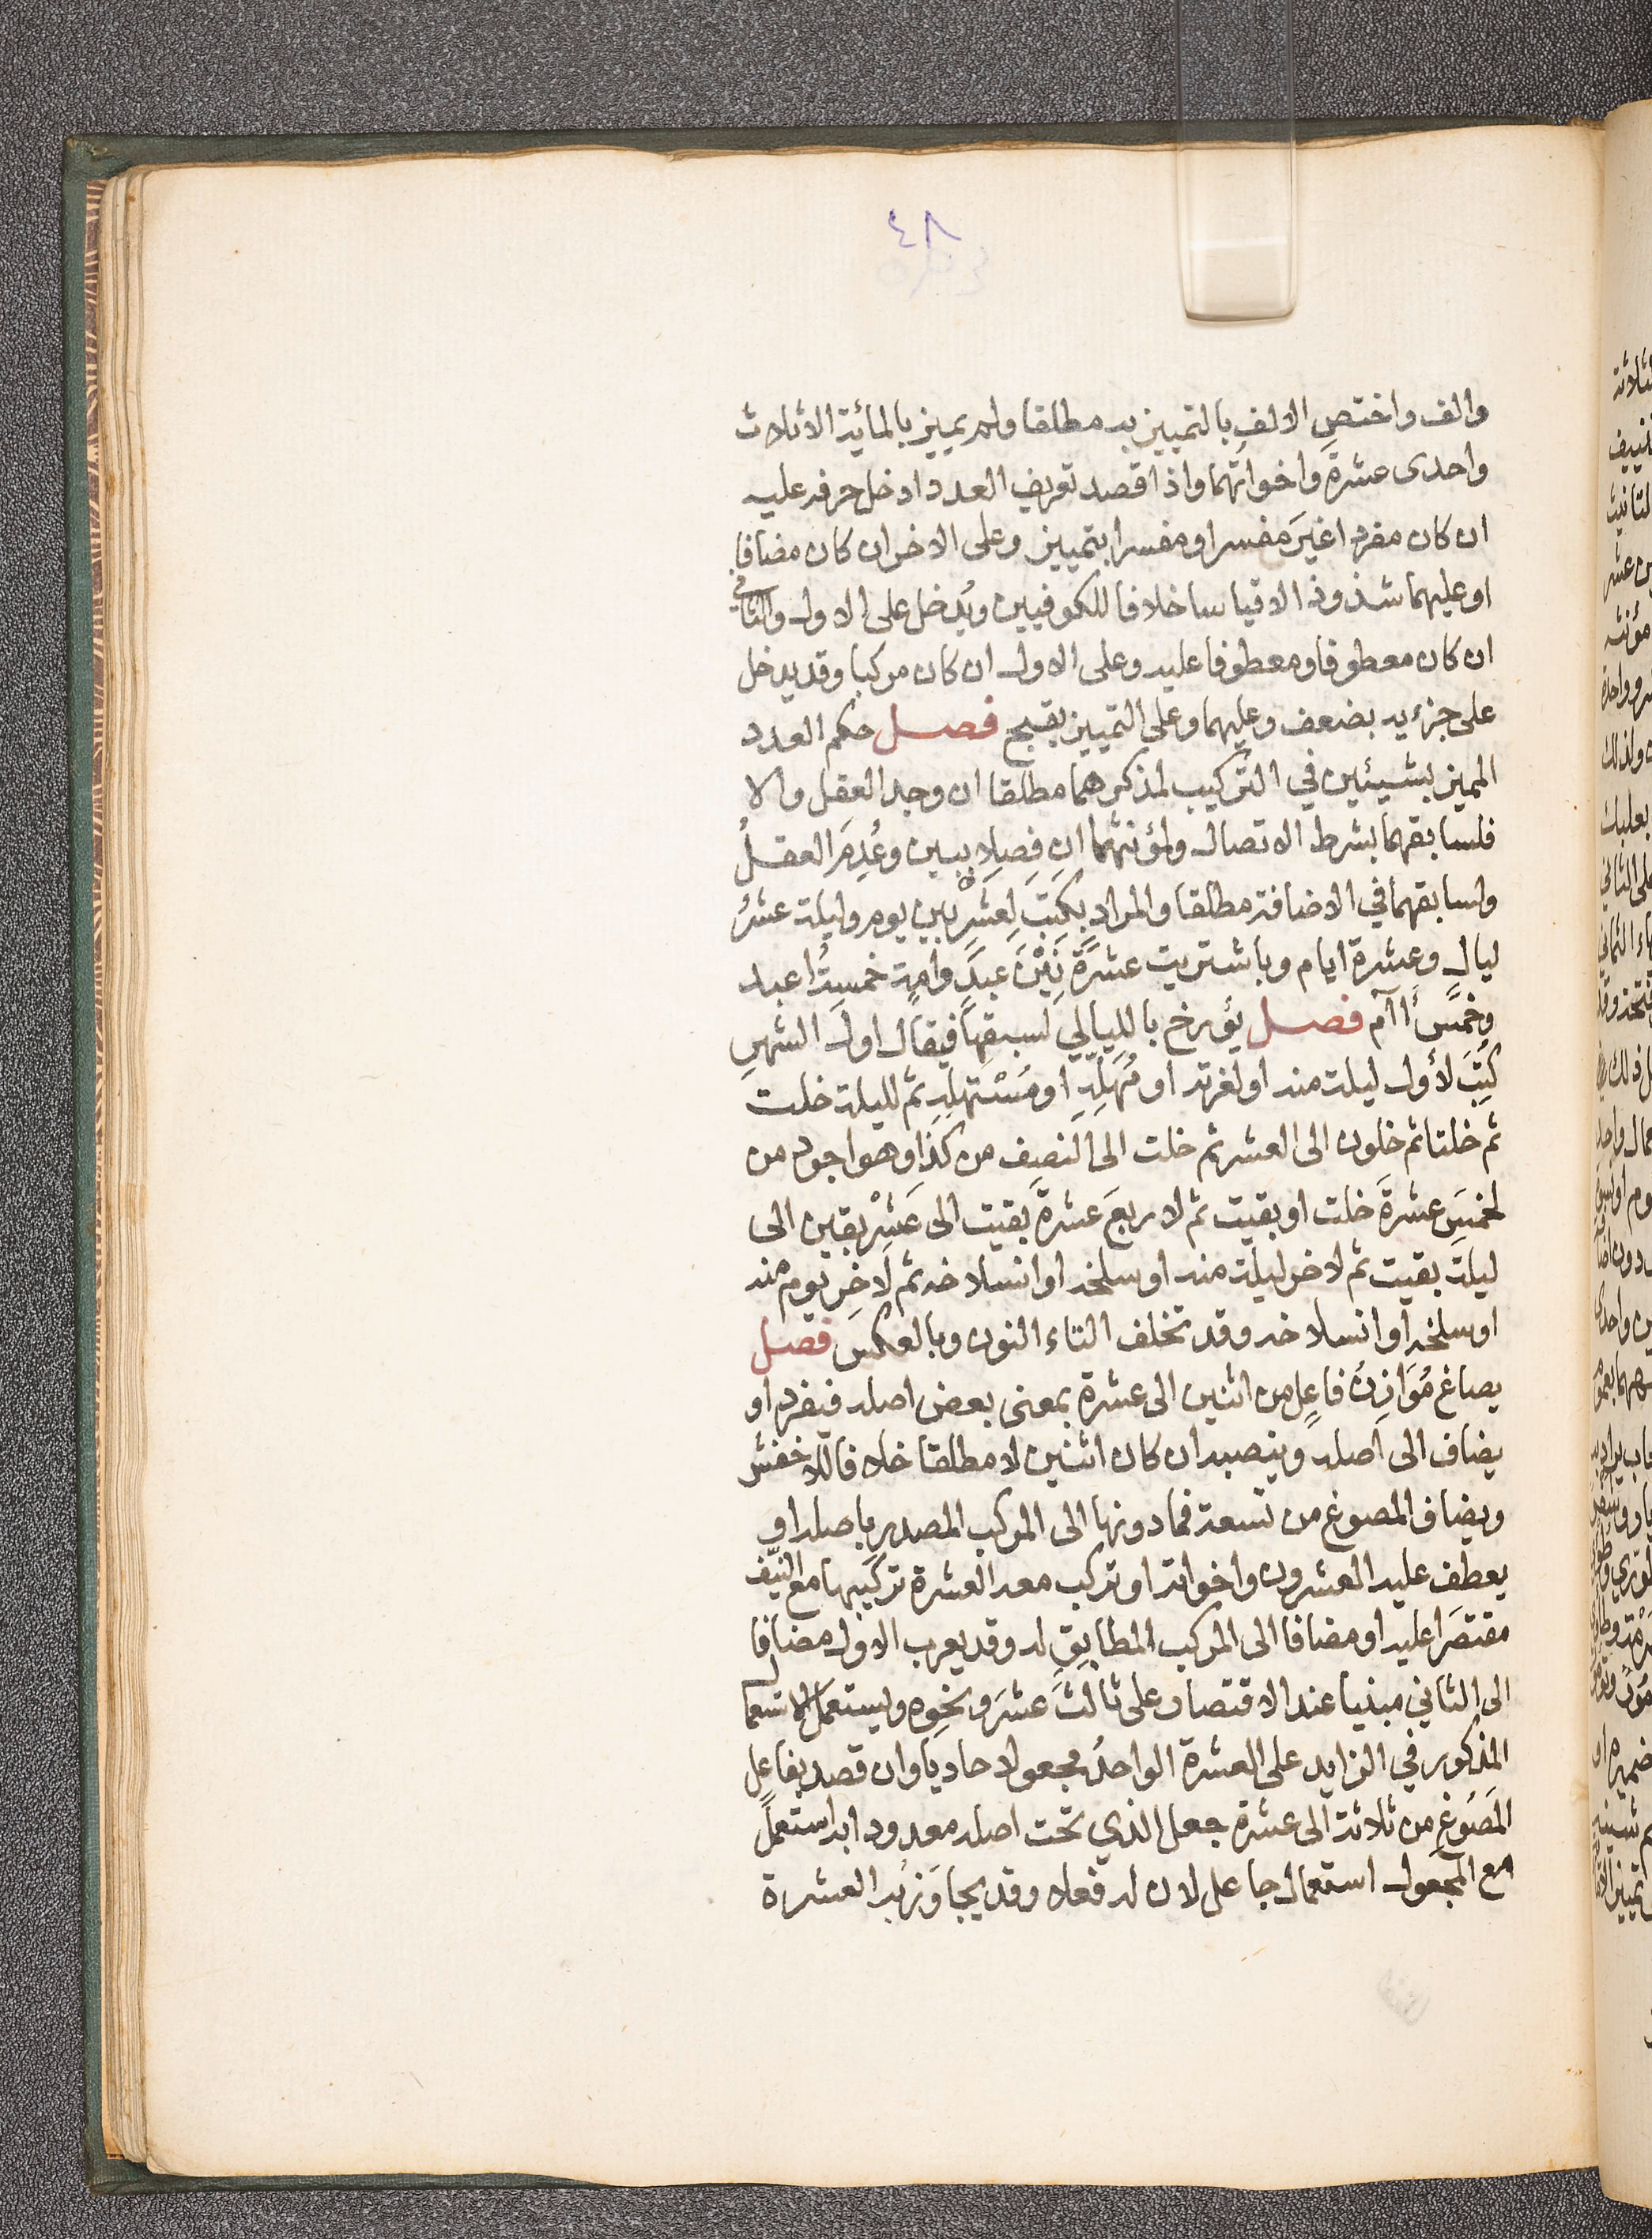 ٤٨
والف واختص الالف بالتمييز به مطلقا ولم يميز بالمائة الا ثلاث
واحدى عشرة واخواتهما واذا قصد تعريف العدد ادخل حرفه عليه
ان كان مفردا غيرَ مفسر او مفسرا بتمييز وعلى الاخر ان كان مضافا
او عليهما شذوذا لا قياسا خلافا للكوفيين ويُدخل على الاول والثاني
ان كان معطوفا ومعطوفا عليه وعلى الاول ان كان مركبا وقد يدخل
على جزءيه بضعف وعليهما وعلى التمييز بقبح فصل حكم العدد
المميز بشيئين في التركيب لمذكرهما مطلقا ان وجد العقل والا
فلسابقهما بشرط الاتصال ولمؤنثهما ان فصلا ببين وعُدِمَ العقلُ
ولسابقهما في الاضافة مطلقا والمراد بكتب لعشرٍ بين يوم وليلة عشرُ
ليالٍ وعشرة ايام وباشتريت عشرةً بَيْنَ عبدٍ وامةٍ خمسةُ اعبد
وخمسُ أآم فصل يؤرخ بالليالي لسبقها فيقال اول الشهرِ
كُتِبَ لأول ليلة منه او لغرته او مُهَلِّهِ او مُسْتَهَلِّهِ ثم لليلة خلت
ثم خلتا ثم خلون الى العشر ثم خلت الى النصف من كذا وهو اجود من
لخمسَ عشرةَ خلت او بقيت ثم لاربعَ عشرةَ بقيت الى عَشْرٍ بقين الى
ليلة بقيت ثم لاخر ليلة منه او سلخه او انسلاخه ثم لآخِرِ يوم منه
او سلخه او انسلاخه وقد تخلف التاء النون وبالعكس فصل
يصاغ مُوَازِنُ فاعِلٍ من اثنين الى عشرة بمعنى بعض اصله فيفرد او
يضاف الى اصله وينصبه ان كان اثنين لا مطلقا خلافا للاخفش
ويضاف المصوغ من تسعة فما دونها الى المركب المصدر باصله او
يعطف عليه العشرون واخواته او تركب معه العشرة تركيبها مع النيّف
مقتصَرا عليه او مضافا الى المركب المطابقِ له وقد يعرب الاول مضافا
الى الثاني مبنيا عند الاقتصار على ثالثَ عشرَ ونحوِه ويستعمل الاستعمال
المذكور في الزايد على العشرة الواحدُ مجعولا حاديا وان قصد بفاعلٍ
المَصُوغِ من ثلاثة الى عشرة جعل الذي تحت اصله معدودا به استعمل
مع المجعول استعمال جاعل لان له فعلا وقد يجاوَز به العشرة